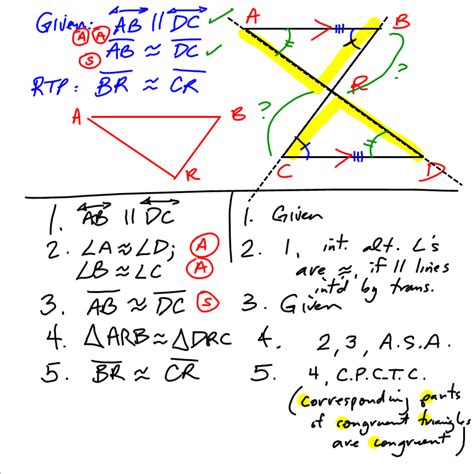 Given: AB || DC ✓
A A
S AB ≈ DC ✓
RTP: BR ≈ CR
A B
R
A B
R
C D
? ?
1. AB || DC 1. Given
2. ∠A ≈ ∠D; A 2. 1, int. alt. ∠'s
∠B ≈ ∠C A are ≈, if || lines
int'd by trans.
3. AB ≈ DC S 3. Given
4. △ARB ≈ △DRC 4. 2, 3, A.S.A.
5. BR ≈ CR 5. 4, C.P.C.T.C.
(corresponding parts
of congruent triangles
are congruent)